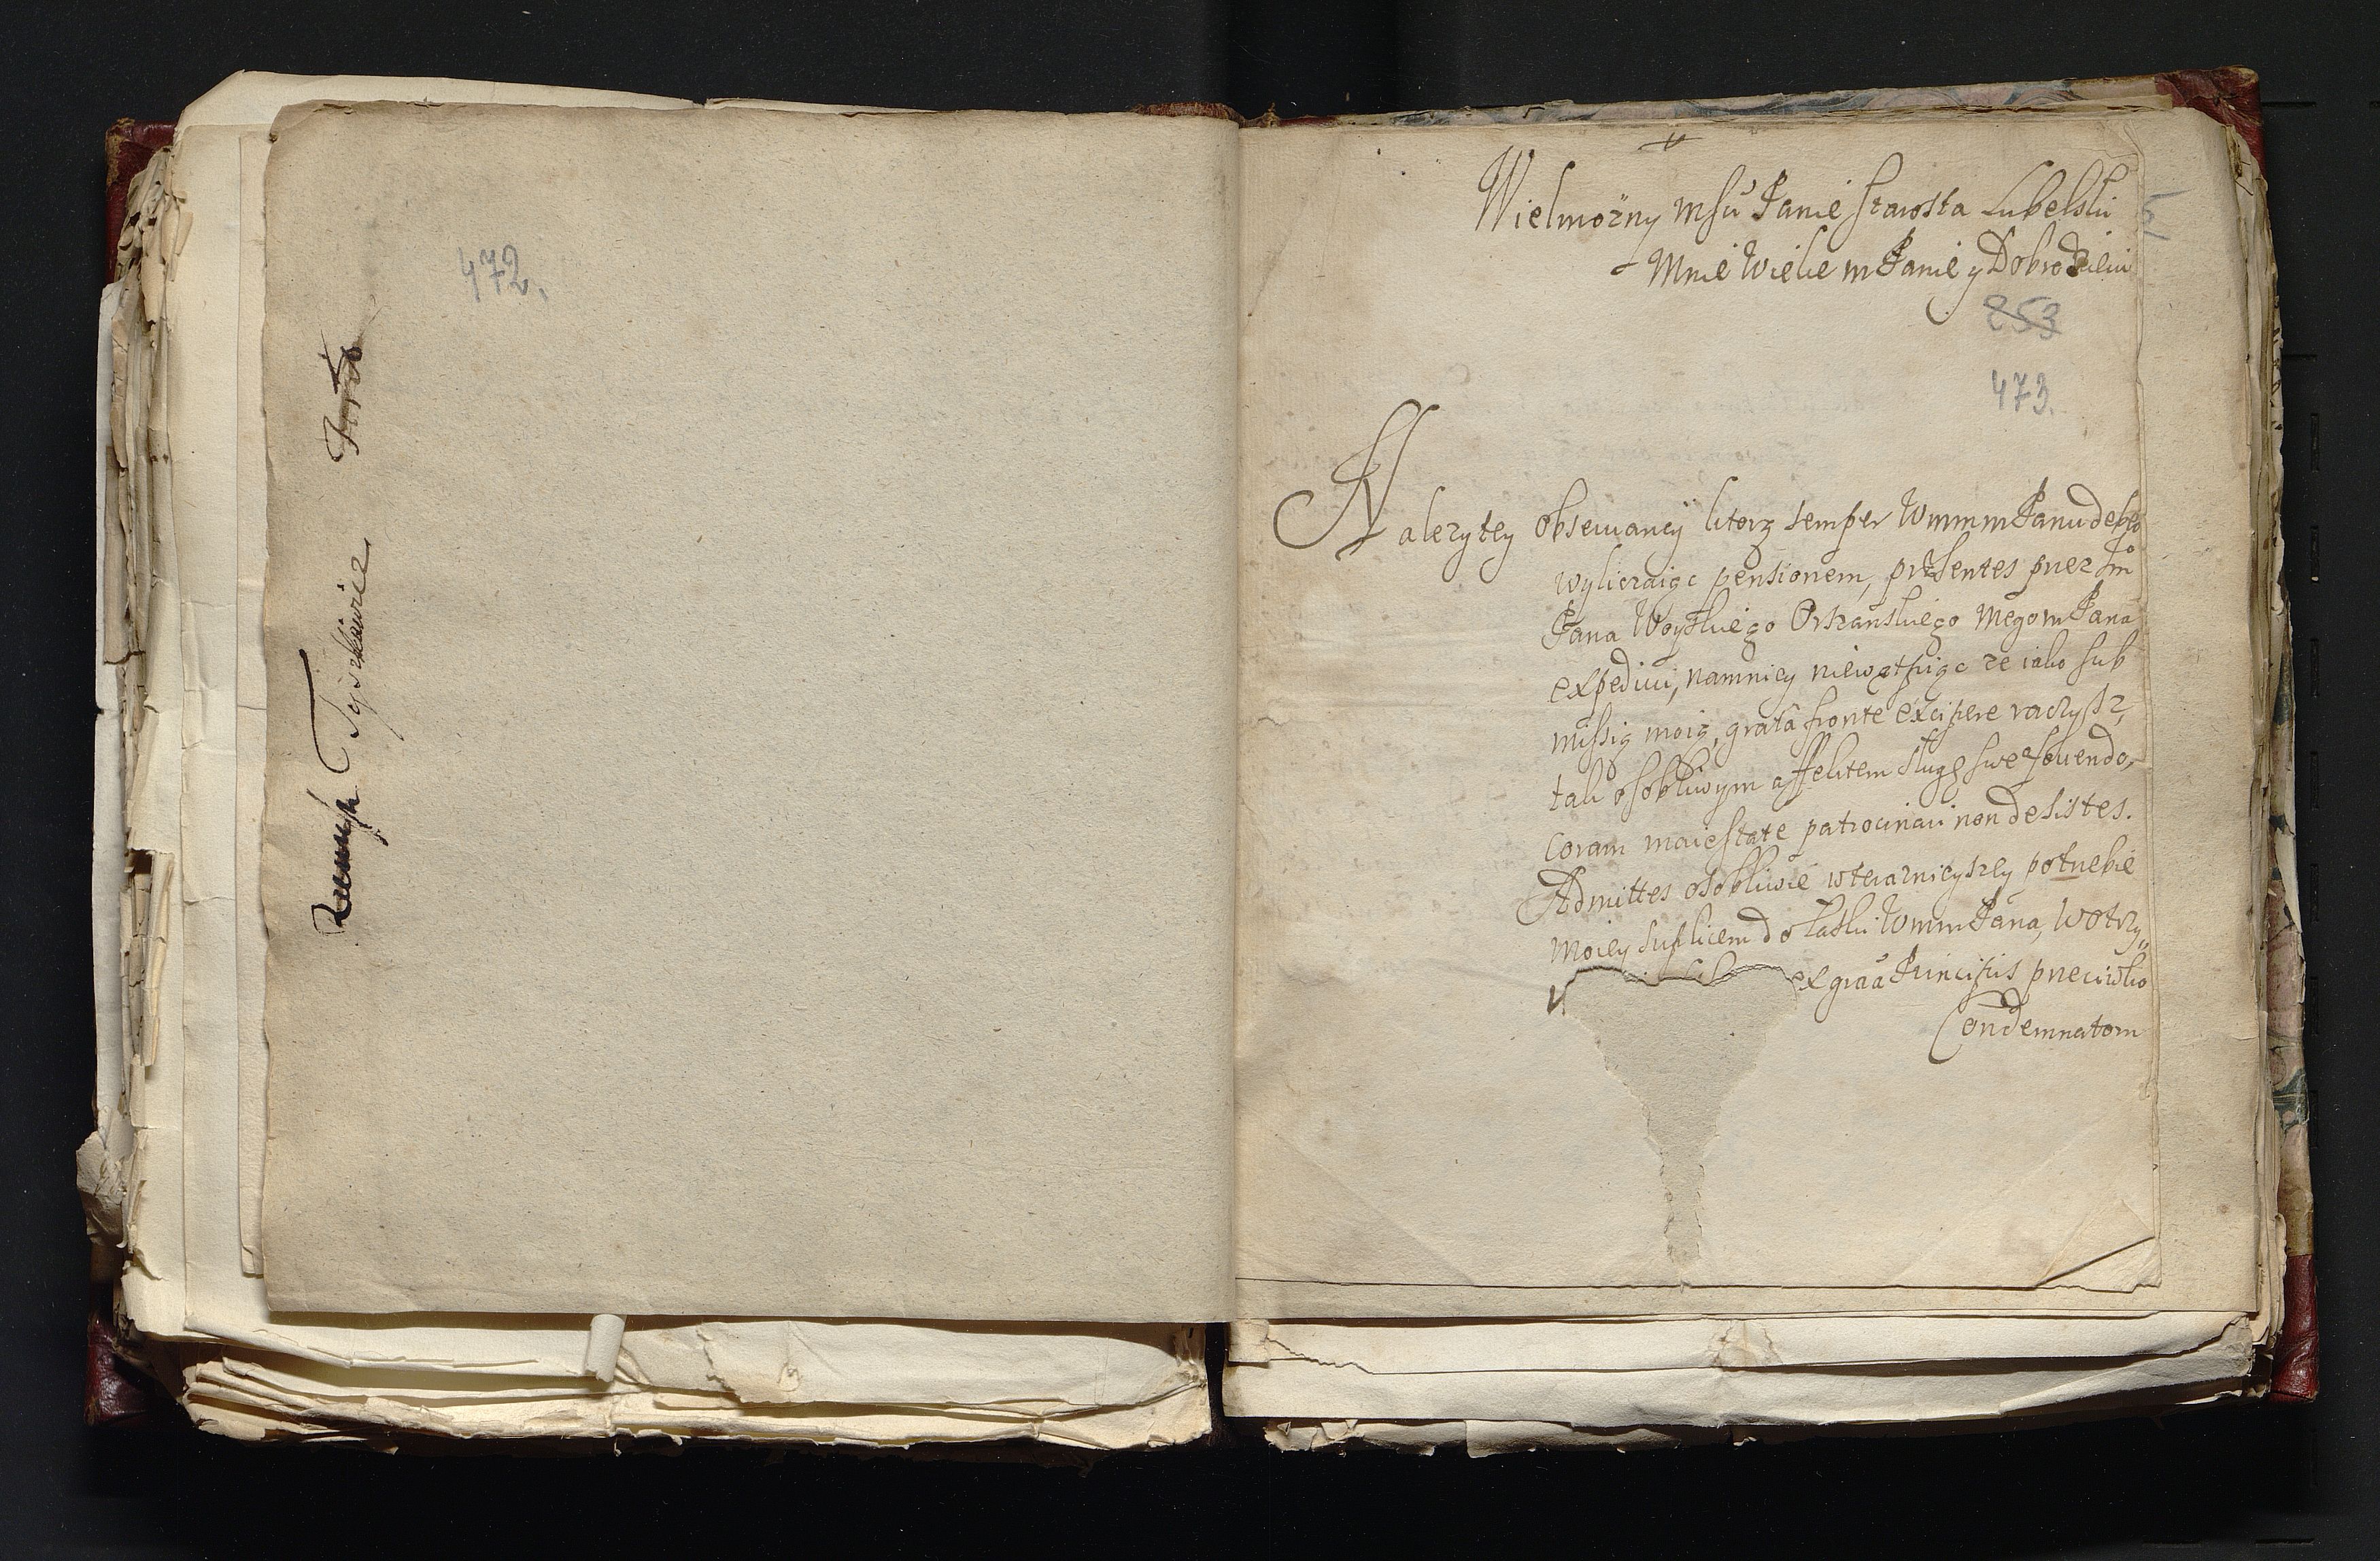 472.
Tyszkiewicz
Wielmożny msći Panie starosta Lubelski
Mnie Wielce m Panie y Dobrodzieiu
253
473.
Nalezytey obserwancÿ ktorą semper Wmmm Panu debeo
wyliczaiąc pensionem, præsentes przez Jm
Pana Woyskiego Orszanskiego mego m Pana
expediui, namniey niewątpiąc ze iako sub
missią moią, gratâ fronte excipere raczysz,
tak osobliwym affektem sługę swe⁰ fouendo,
coram maiestate patrocinari non desistes.
Admittes osobliwie wteraznieyszey potrzebie
moiey suplicem do łaski Wmm Pana, wotrzy„
ex graâ Principis przeciwko
Condemnatom